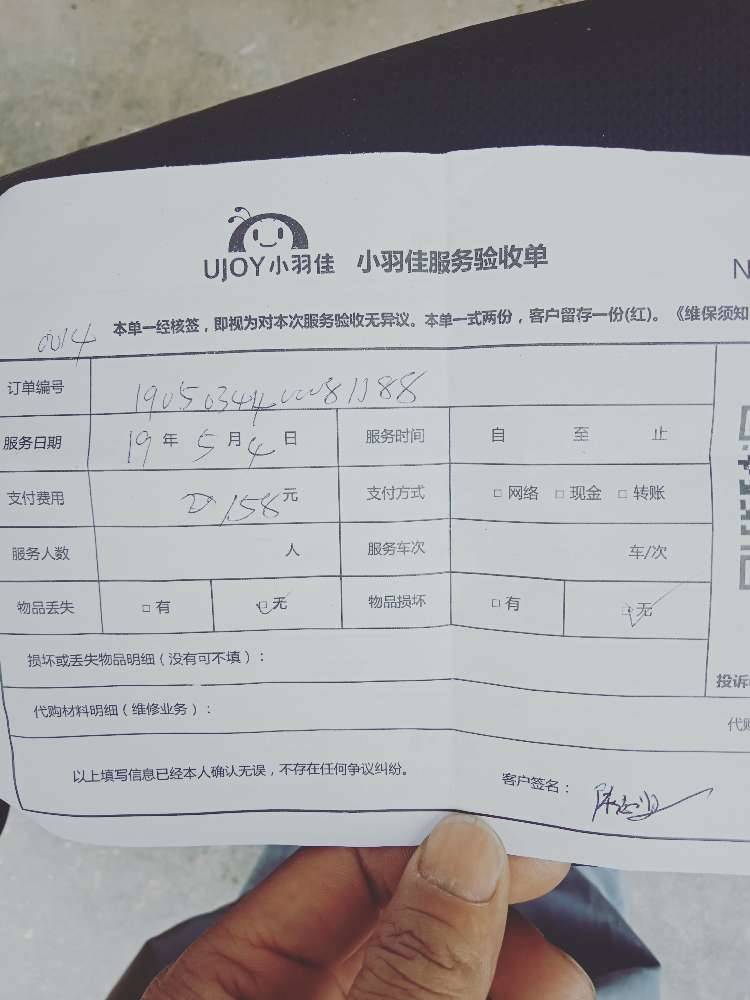 UJOY小羽佳 小羽佳服务验收单
N
0014 本单一经核签，即视为对本次服务验收无异议。本单一式两份，客户留存一份(红)。《维保须知
订单编号
服务日期 19年5月4日 服务时间 自 至 止
支付费用 158元 支付方式 □ 网络 □ 现金 □ 转账
服务人数 人 服务车次 车/次
物品丢失 □ 有 □ 无 物品损坏 □ 有 □ 无
损坏或丢失物品明细（没有可不填）：
投诉
代购材料明细（维修业务）：
代购
以上填写信息已经本人确认无误，不存在任何争议纠纷。
客户签名：